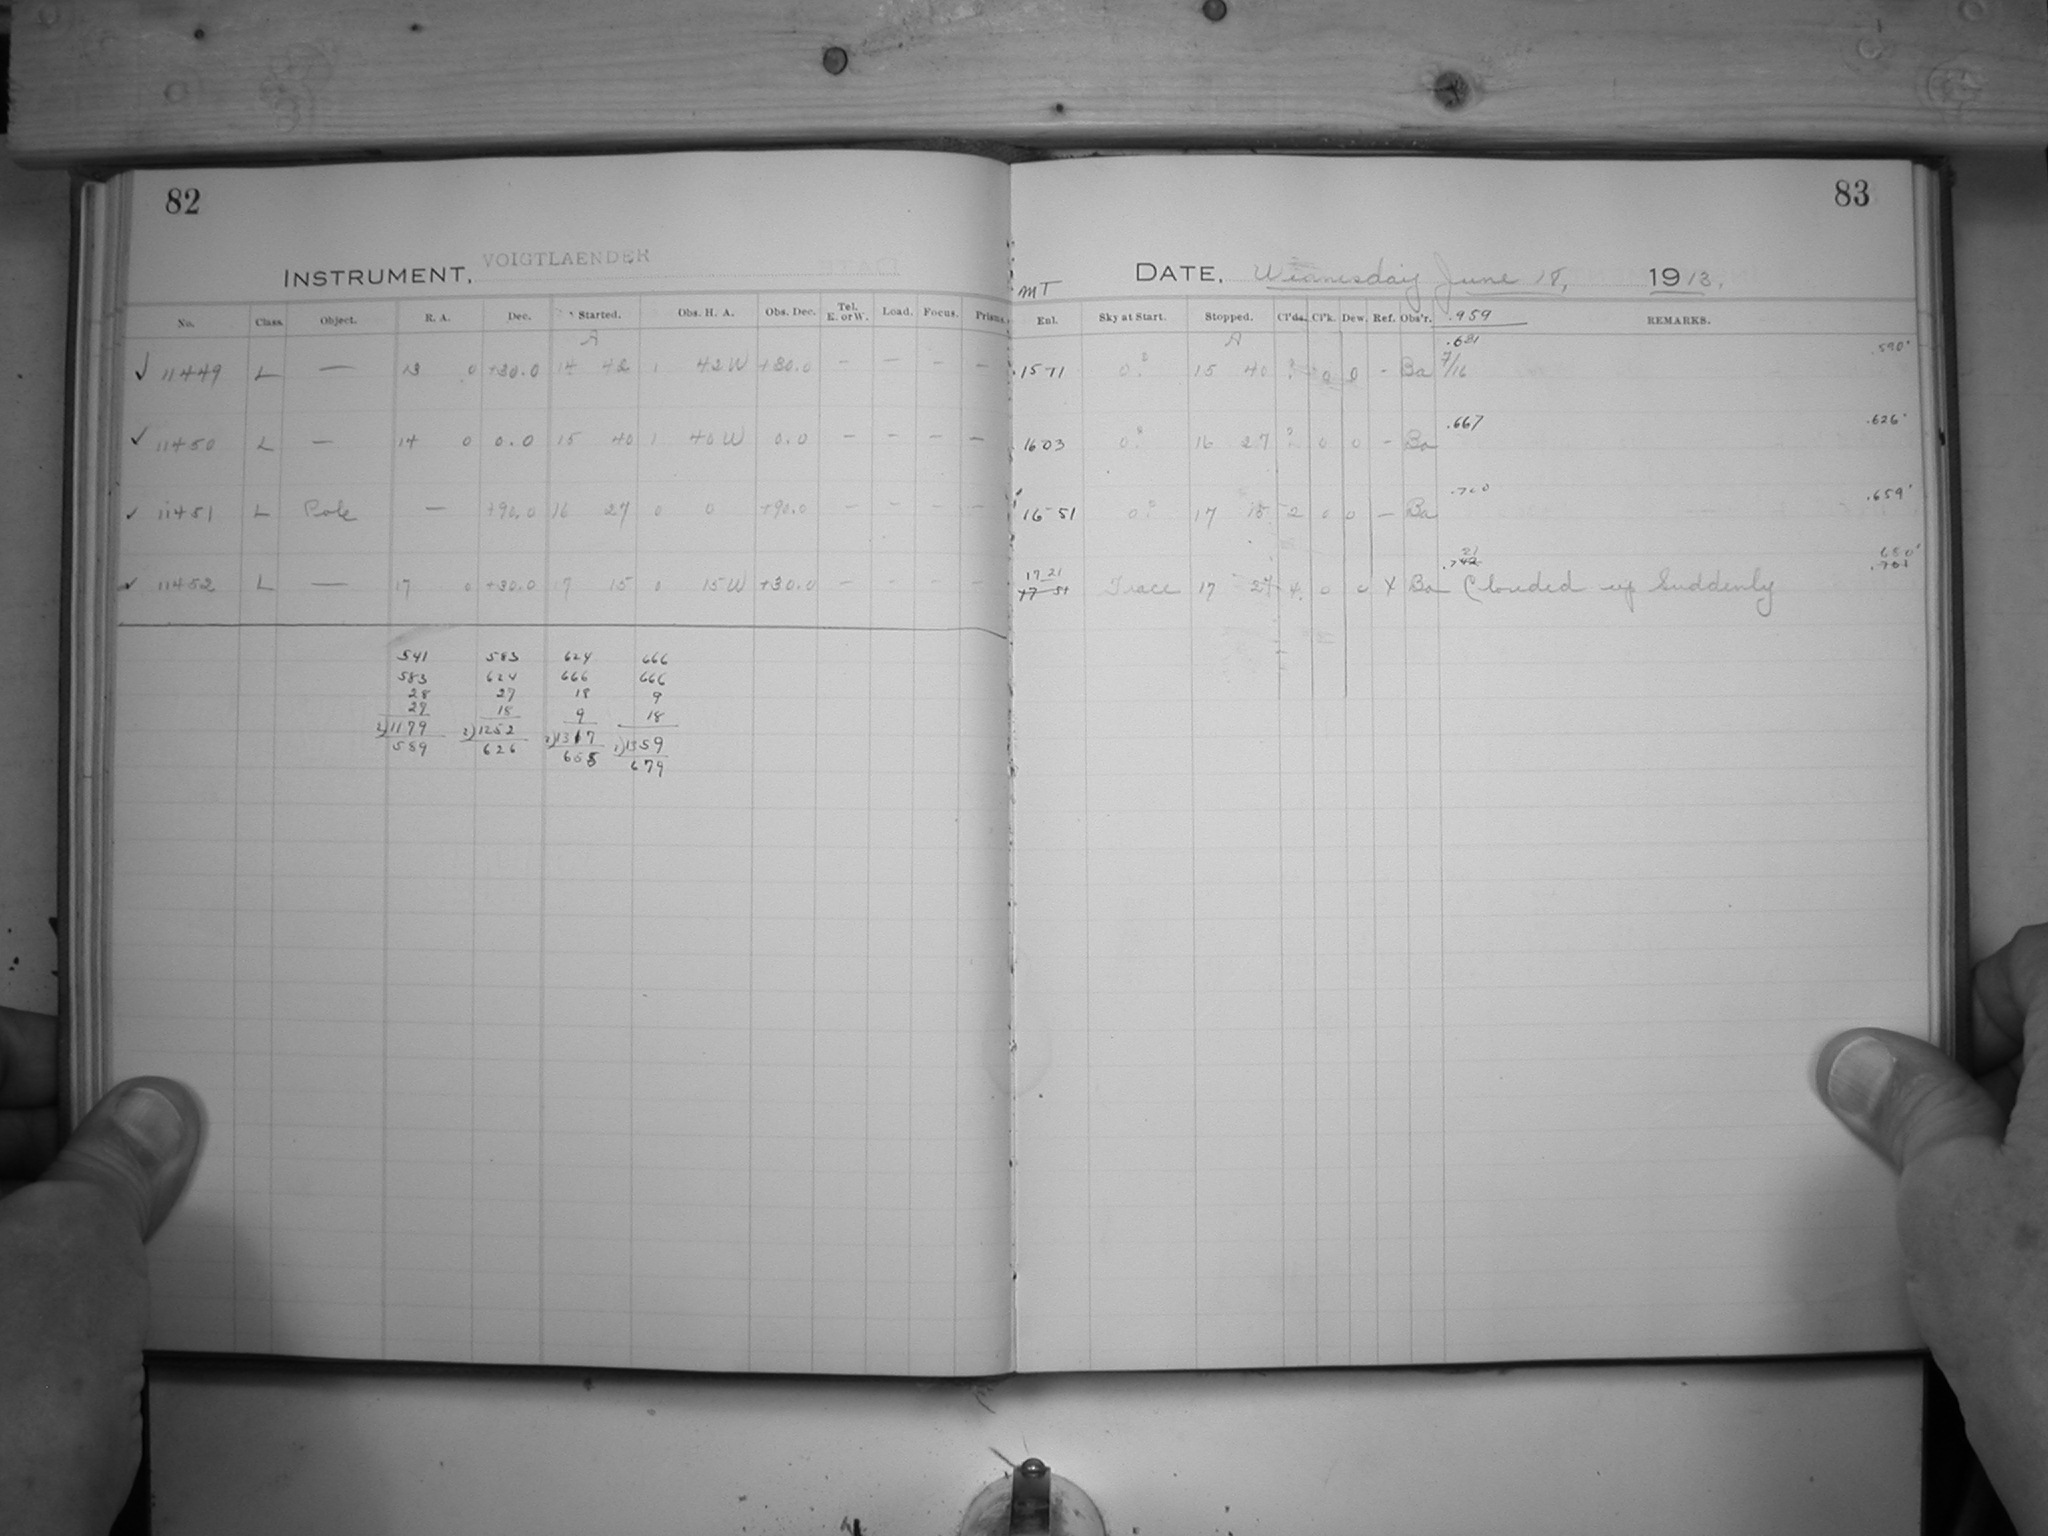 82
INSTRUMENT, VOIGTLAENDER
No. Class. Object. R. A. Dec. Started. Obs. H. A. Obs. Dec. Tel. E. or W. Load. Focus. Prisms.
A
✓ 11449 L — 13 0 +30.0 14 42 1 42 W +30.0 — — — —
✓ 11450 L — 14 0 0.0 15 40 1 40 W 0.0 — — — —
✓ 11451 L Pole — +90.0 16 27 0 0 +90.0 — — — —
✓ 11452 L — 17 0 +30.0 17 15 0 15 W +30.0 — — — —
541 583 624 666
583 624 666 666
28 27 18 9
27 18 9 18
2)1179 2)1252 2)1317 2)1359
589 626 658 679
83
DATE, Wednesday June 18, 1913.
MT
Enl. Sky at Start. Stopped. Cl'ds. Cl'k. Dew. Ref. Obs'r. .959 REMARKS.
A .621 .590
1571 0? 15 40 ? 0 0 - Ba 7/16
.667 .626
1603 0? 16 27 ? 0 0 - Ba
.700 .659
1651 0? 17 15 2 0 0 — Ba
21 680
.742 .701
17 21
17 51 Trace 17 27 4 0 0 X Ba Clouded up Suddenly